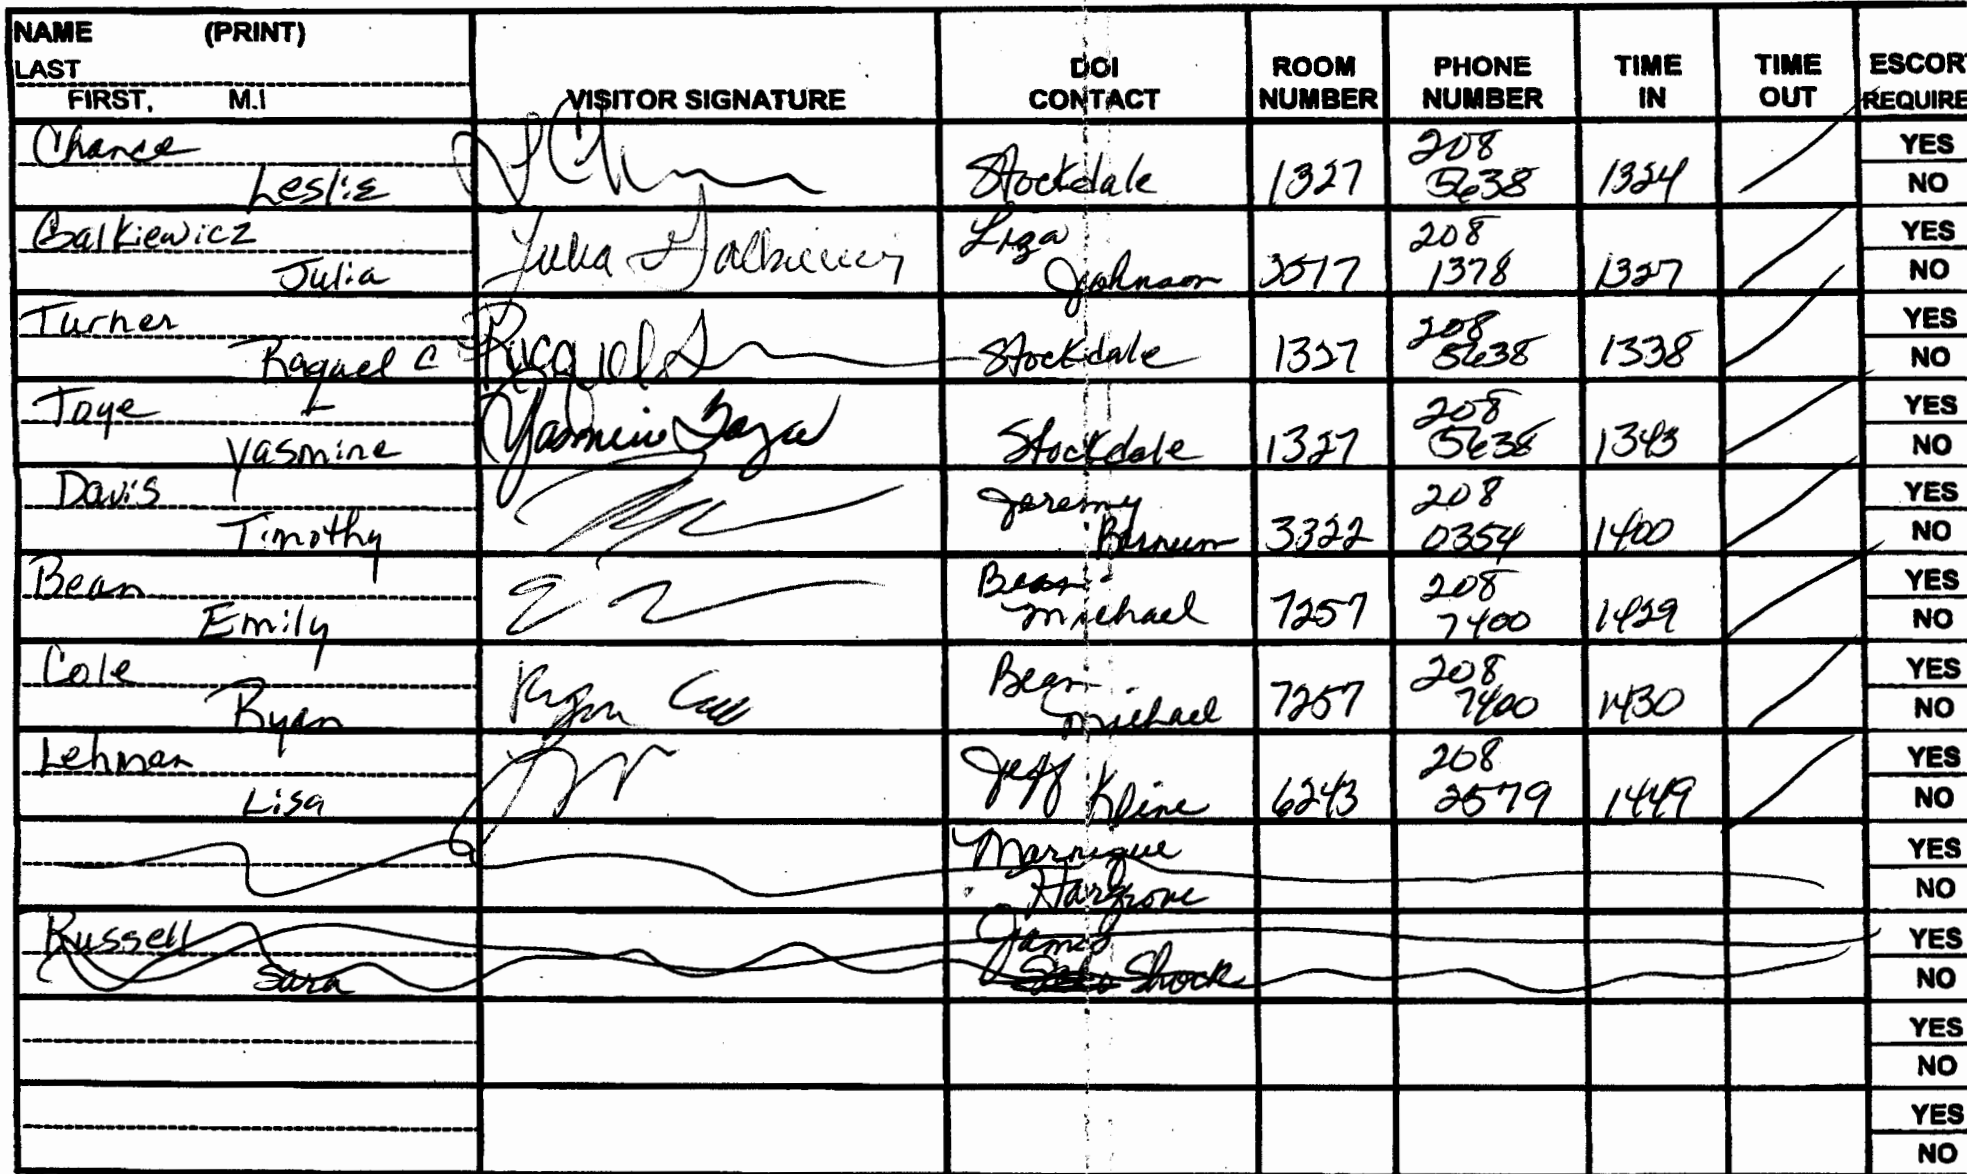 NAME (PRINT)
LAST
FIRST, M.I
VISITOR SIGNATURE
DOI CONTACT
ROOM NUMBER
PHONE NUMBER
TIME IN
TIME OUT
ESCORT REQUIRE
Chance
Leslie
Stockdale 1327 208 5638 1324
YES
NO
Galkiewicz
Julia
Julia Galkiewicz
Liza Johnson 3517 208 1378 1327
YES
NO
Turner
Raquel C
Stockdale 1327 208 5638 1338
YES
NO
Taye L
Yasmine
Stockdale 1327 208 5638 1343
YES
NO
Davis
Timothy
Jeremy Barnum 3322 208 0354 1400
YES
NO
Bean
Emily
Bean Michael 7257 208 7400 1429
YES
NO
Cole
Ryan
Ryan Cole
Bean Michael 7257 208 7400 1430
YES
NO
Lehman
Lisa
Jeff Kline 6243 208 2579 1449
YES
NO
Marnique Hargrove
YES
NO
Russell
Sara
James Shock
YES
NO
YES
NO
YES
NO